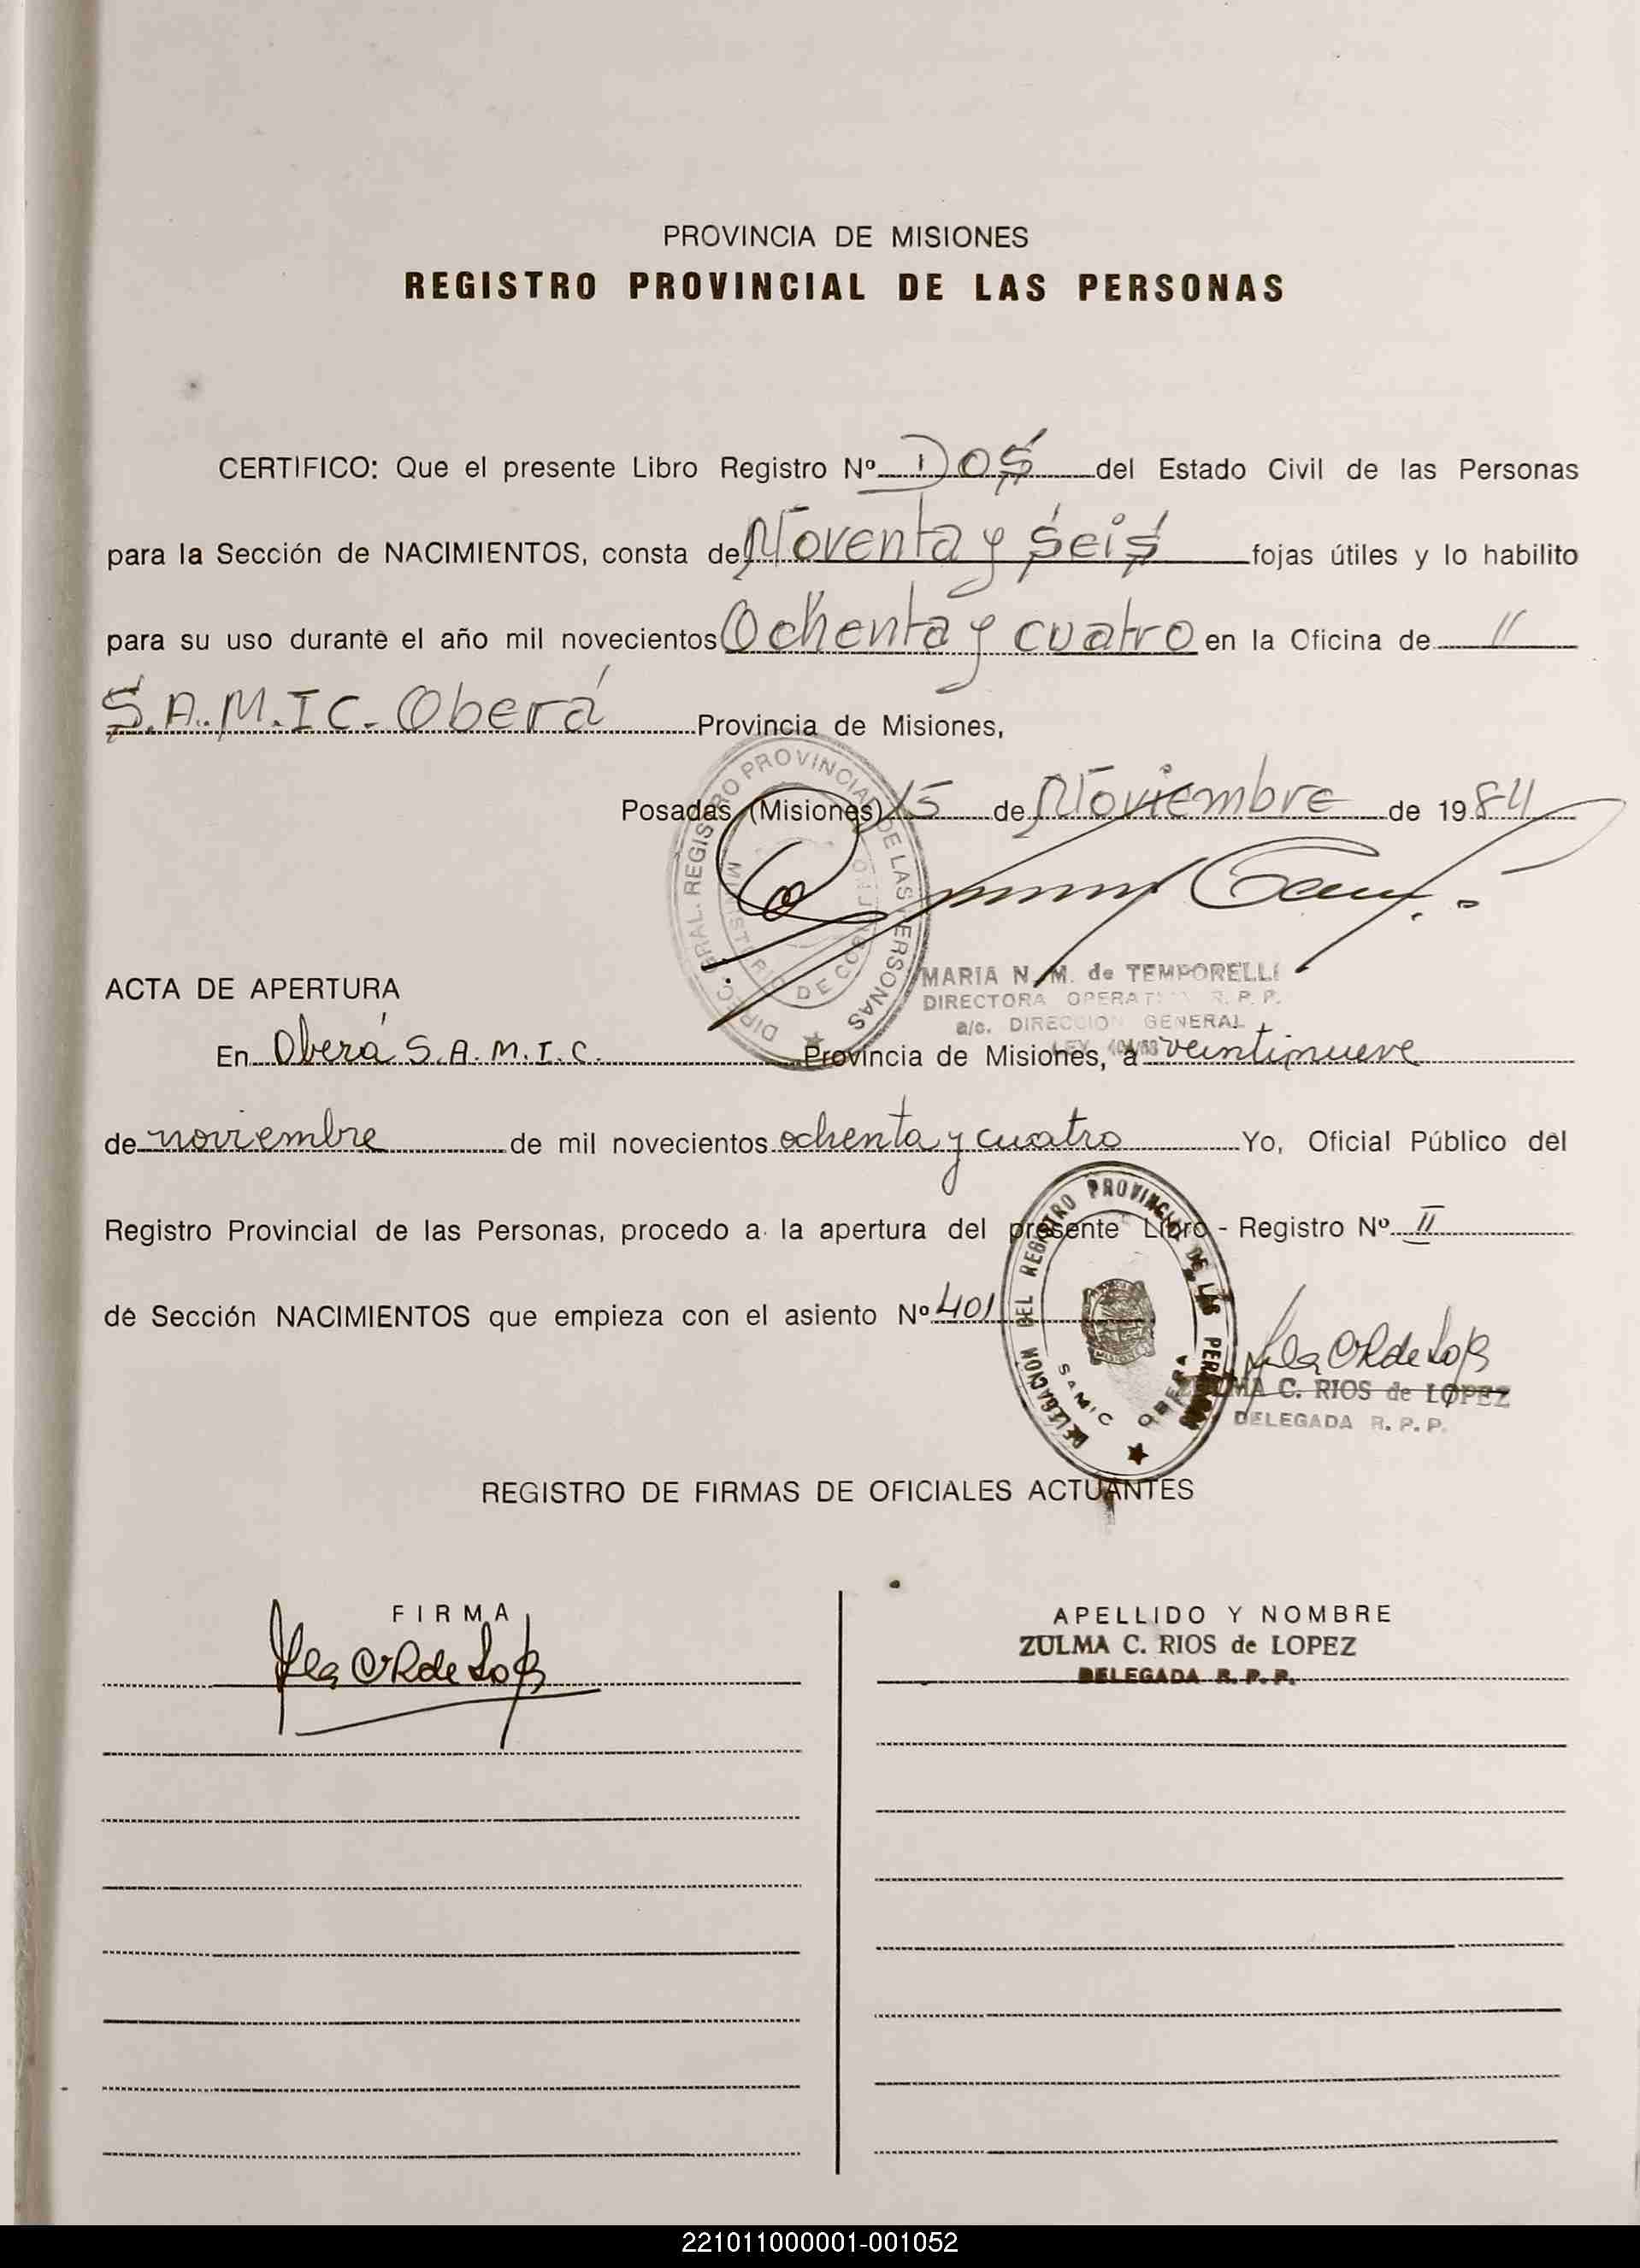 PROVINCIA DE MISIONES
REGISTRO PROVINCIAL DE LAS PERSONAS
CERTIFICO: Que el presente Libro Registro Nº Dos del Estado Civil de las Personas
para la Sección de NACIMIENTOS, consta de Noventa y Seis fojas útiles y lo habilito
para su uso durante el año mil novecientos Ochenta y cuatro en la Oficina de "
S.A.M.I.C. Oberá Provincia de Misiones,
Posadas (Misiones) 15 de Noviembre de 1984
DIREC. GRAL. REGISTRO PROVINCIAL DE LAS PERSONAS
MINISTERIO DE GOBIERNO
MARIA N. M. de TEMPORELLI
DIRECTORA OPERATIVA R. P. P.
a/c. DIRECCION GENERAL
LEY
ACTA DE APERTURA
En Oberá S.A.M.I.C. Provincia de Misiones, a veintinueve
de noviembre de mil novecientos ochenta y cuatro Yo, Oficial Público del
Registro Provincial de las Personas, procedo a la apertura del presente Libro - Registro Nº II
de Sección NACIMIENTOS que empieza con el asiento Nº 401
DELEGACION DEL REGISTRO PROVINCIAL DE LAS PERSONAS
MISIONES
SAMIC OBERA
ZULMA C. RIOS de LOPEZ
DELEGADA R. P. P.
REGISTRO DE FIRMAS DE OFICIALES ACTUANTES
FIRMA
APELLIDO Y NOMBRE
ZULMA C. RIOS de LOPEZ
DELEGADA R. P. P.
221011000001-001052